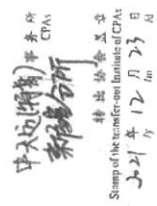 事务所
CPAs
分所
转出协会盖章
Stamp of the transfer-out Institute of CPAs
2021年12月23日
/y /m /d